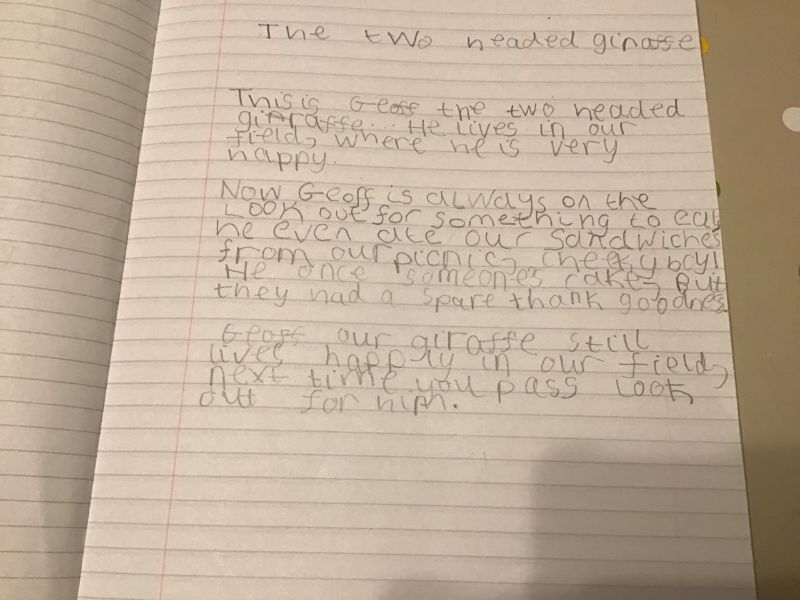 The two headed giraffe
This is Geoff the two headed
giraffe. He lives in our
field, where he is very
happy.
Now Geoff is always on the
Look out for something to eat
he even ate our sandwiches
from our picnic, cheeky boy!
He once someones cake, But
they had a spare thank goodness
Geoff our giraffe still
lives happly in our field,
next time you pass Look
out for him.